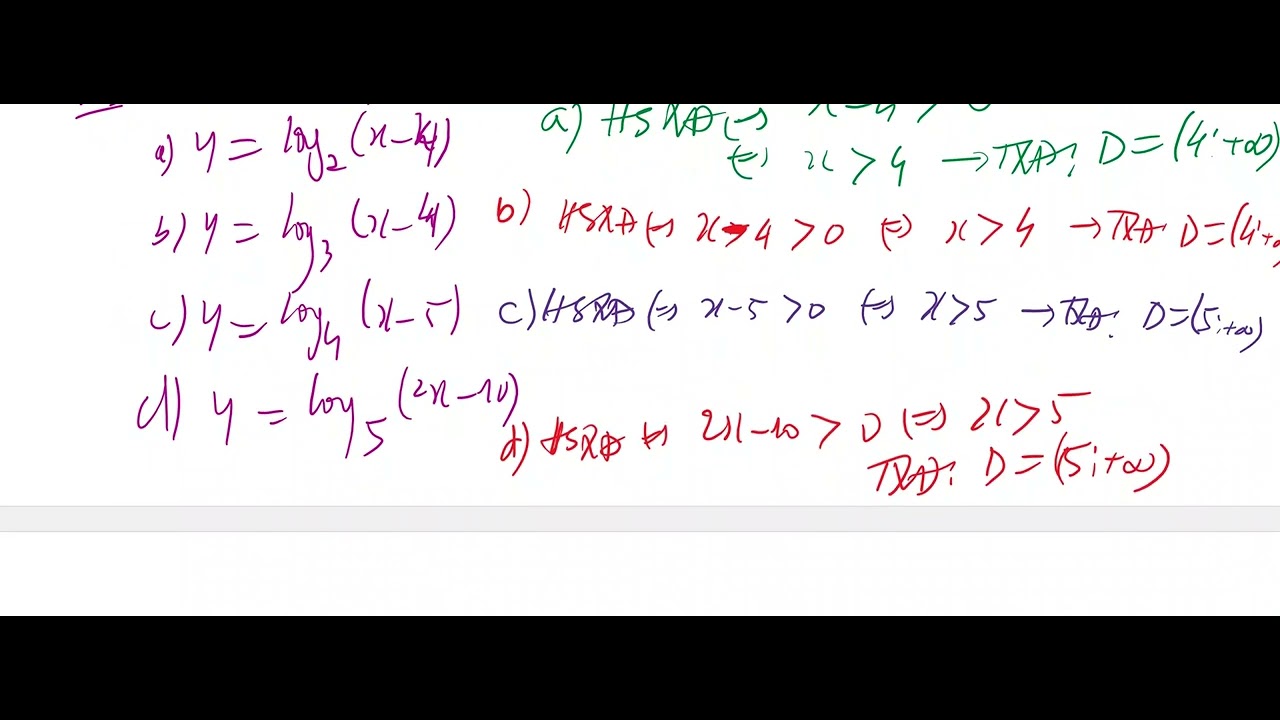 a) y = log₂ (x-4)
b) y = log₃ (x-4)
c) y = log₄ (x-5)
d) y = log₅ (2x-10)
a) HSXĐ ⇔ x-4 > 0
⇔ x > 4 → TXĐ: D = (4;+∞)
b) HSXĐ ⇔ x-4 > 0 ⇔ x > 4 → TXĐ: D = (4;+∞
c) HSXĐ ⇔ x-5 > 0 ⇔ x > 5 → TXĐ: D = (5;+∞)
d) HSXĐ ⇔ 2x-10 > 0 ⇔ x > 5
TXĐ: D = (5;+∞)